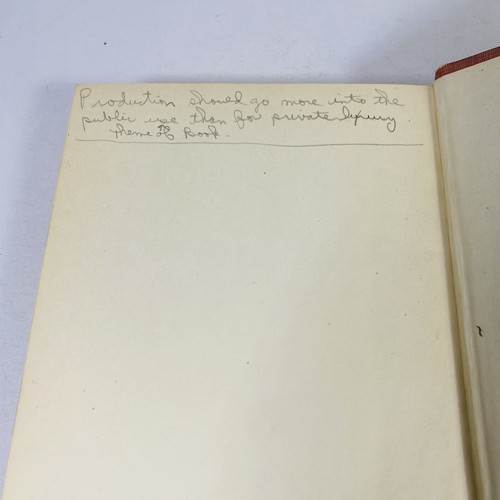 Production should go more into the
public use than for private luxury.
theme of Book.